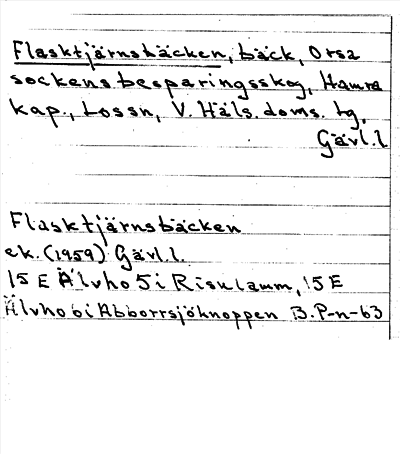 Flasktjärnsbäcken, bäck, Orsa
sockens besparingsskog, Hamra
kap., Lossn, V. Häls. doms. tg,
Gävl.l
Flasktjärnsbäcken
ek. (1959) Gävl.l.
15 E Älvho 5 i Risulamm, 15 E
Älvho 6 i Abborrsjöknoppen B.P-n-63